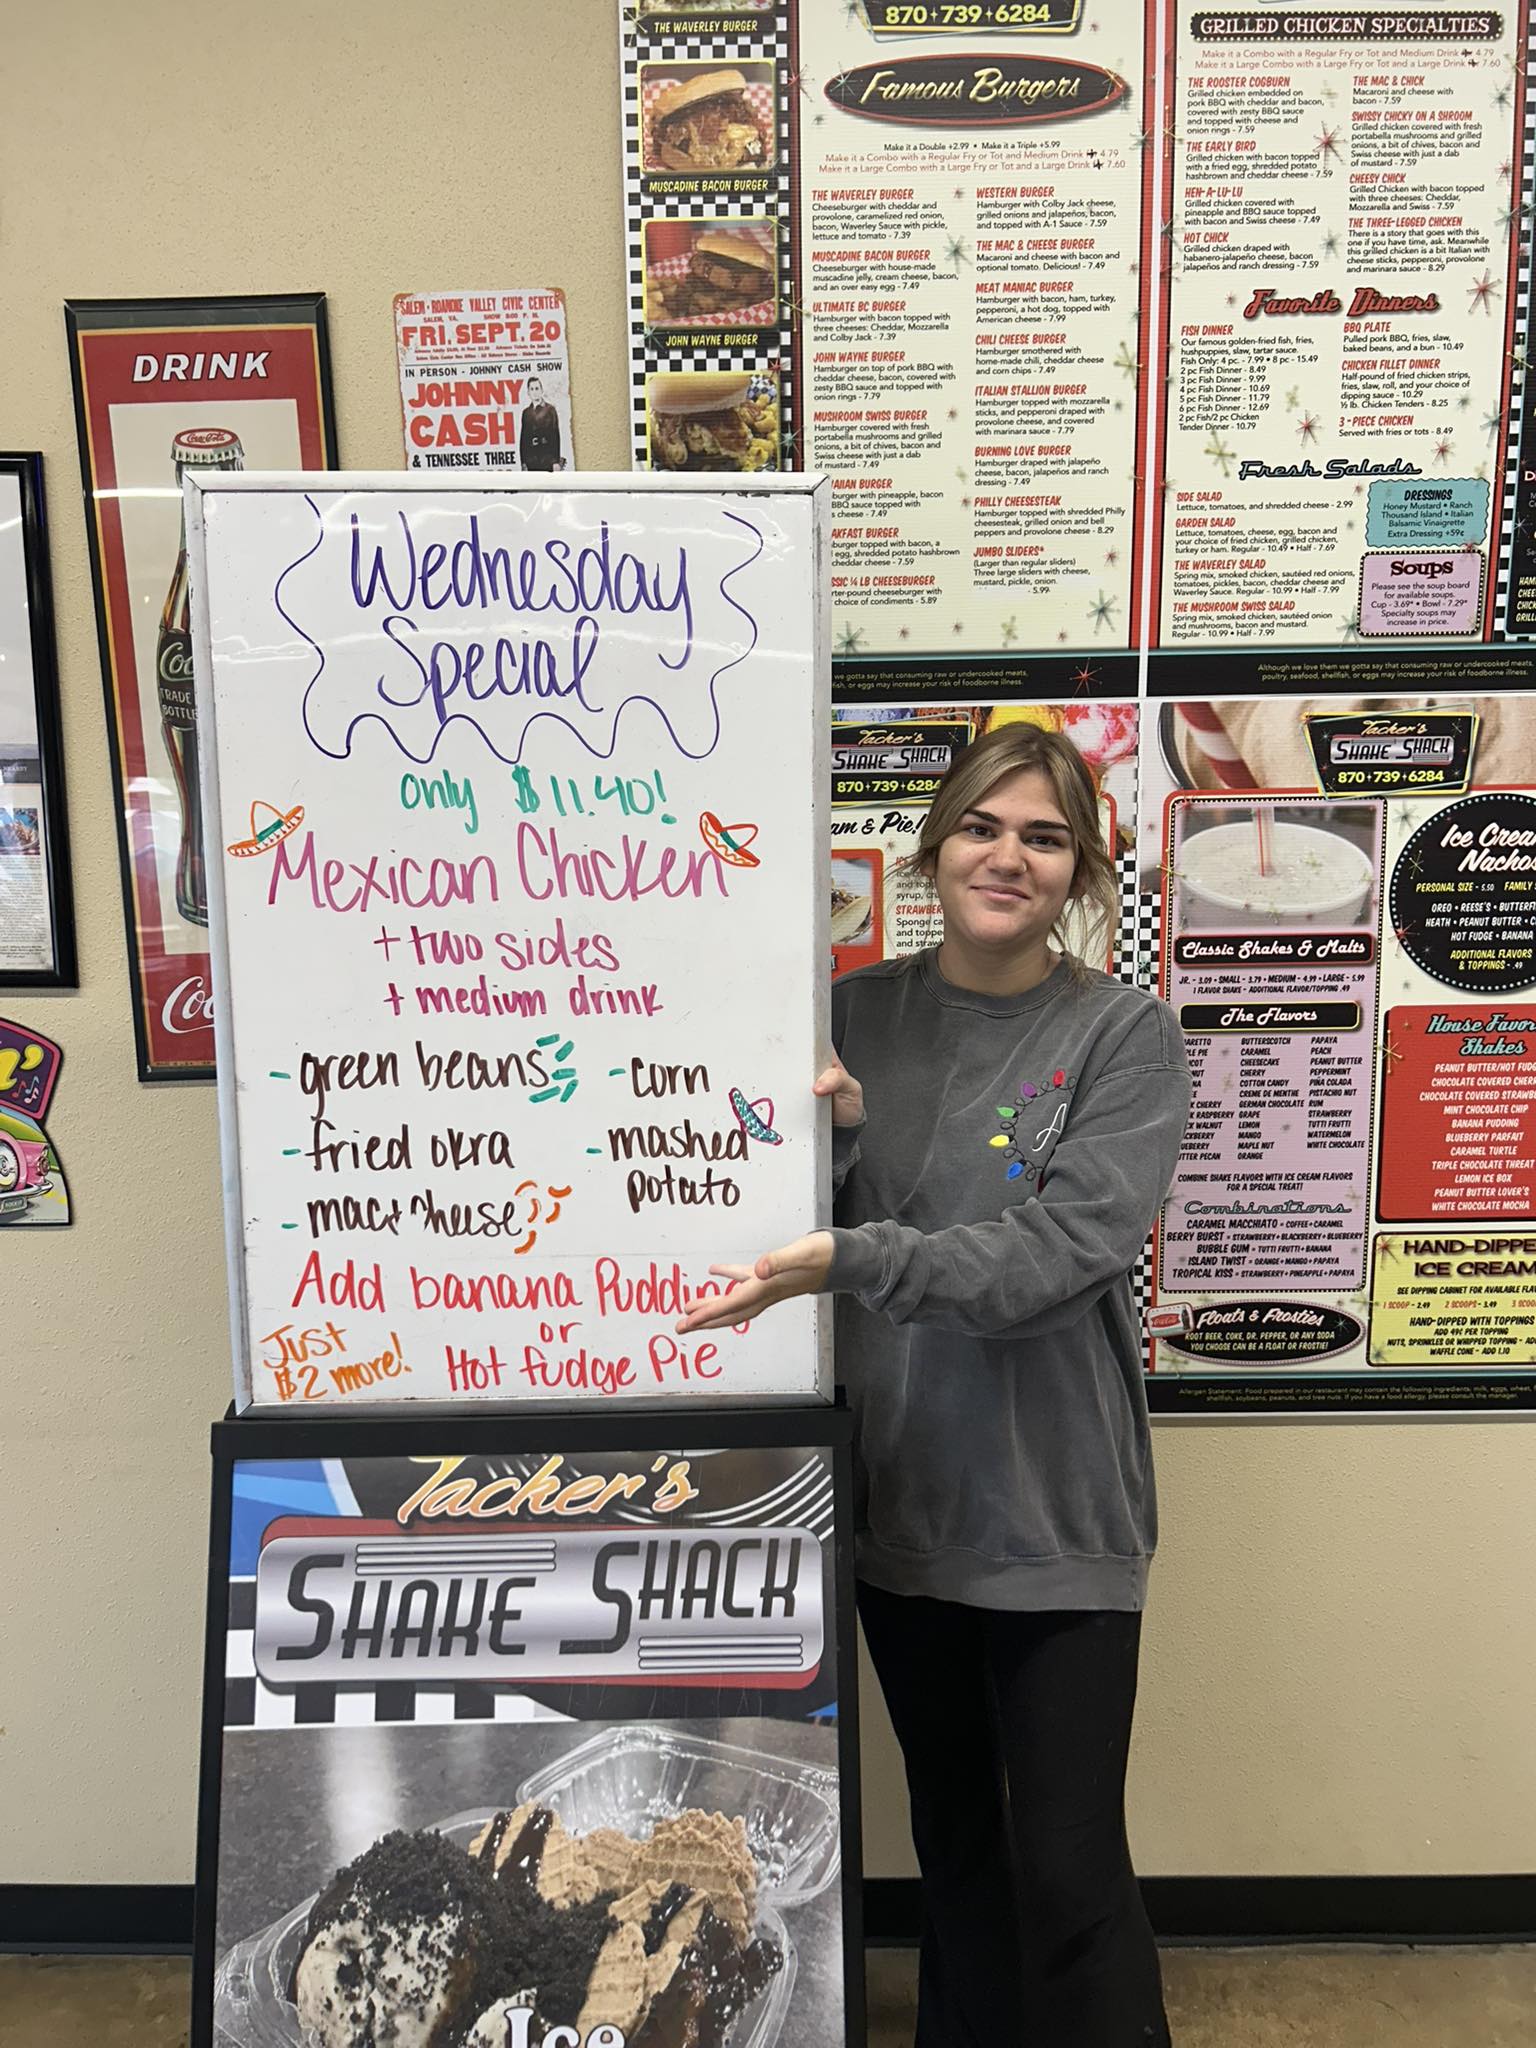 THE WAVERLEY BURGER
MUSCADINE BACON BURGER
JOHN WAYNE BURGER
870+739+6284
Famous Burgers
Make it a Double +2.99 • Make it a Triple +5.99
Make it a Combo with a Regular Fry or Tot and Medium Drink + 4.79
Make it a Large Combo with a Large Fry or Tot and a Large Drink + 7.60
THE WAVERLEY BURGER
Cheeseburger with cheddar and
provolone, caramelized red onion,
bacon, Waverley Sauce with pickle,
lettuce and tomato - 7.39
MUSCADINE BACON BURGER
Cheeseburger with house-made
muscadine jelly, cream cheese, bacon,
and an over easy egg - 7.49
ULTIMATE BC BURGER
Hamburger with bacon topped with
three cheeses: Cheddar, Mozzarella
and Colby Jack - 7.39
JOHN WAYNE BURGER
Hamburger on top of pork BBQ with
cheddar cheese, bacon, covered with
zesty BBQ sauce and topped with
onion rings - 7.79
MUSHROOM SWISS BURGER
Hamburger covered with fresh
portabella mushrooms and grilled
onions, a bit of chives, bacon and
Swiss cheese with just a dab
of mustard - 7.49
AIIAN BURGER
burger with pineapple, bacon
BBQ sauce topped with
s cheese - 7.49
AKFAST BURGER
burger topped with bacon, a
egg, shredded potato hashbrown
cheddar cheese - 7.59
SSIC ¼ LB CHEESEBURGER
rter-pound cheeseburger with
choice of condiments - 5.89
WESTERN BURGER
Hamburger with Colby Jack cheese,
grilled onions and jalapeños, bacon,
and topped with A-1 Sauce - 7.59
THE MAC & CHEESE BURGER
Macaroni and cheese with bacon and
optional tomato. Delicious! - 7.49
MEAT MANIAC BURGER
Hamburger with bacon, ham, turkey,
pepperoni, a hot dog, topped with
American cheese - 7.99
CHILI CHEESE BURGER
Hamburger smothered with
home-made chili, cheddar cheese
and corn chips - 7.49
ITALIAN STALLION BURGER
Hamburger topped with mozzarella
sticks, and pepperoni draped with
provolone cheese, and covered
with marinara sauce - 7.79
BURNING LOVE BURGER
Hamburger draped with jalapeño
cheese, bacon, jalapeños and ranch
dressing - 7.49
PHILLY CHEESESTEAK
Hamburger topped with shredded Philly
cheesesteak, grilled onion and bell
peppers and provolone cheese - 8.29
JUMBO SLIDERS*
(Larger than regular sliders)
Three large sliders with cheese,
mustard, pickle, onion.
5.99
we gotta say that consuming raw or undercooked meats,
fish, or eggs may increase your risk of foodborne illness.
GRILLED CHICKEN SPECIALTIES
Make it a Combo with a Regular Fry or Tot and Medium Drink + 4.79
Make it a Large Combo with a Large Fry or Tot and a Large Drink + 7.60
THE ROOSTER COGBURN
Grilled chicken embedded on
pork BBQ with cheddar and bacon,
covered with zesty BBQ sauce
and topped with cheese and
onion rings - 7.59
THE EARLY BIRD
Grilled chicken with bacon topped
with a fried egg, shredded potato
hashbrown and cheddar cheese - 7.59
HEN-A-LU-LU
Grilled chicken covered with
pineapple and BBQ sauce topped
with bacon and Swiss cheese - 7.49
HOT CHICK
Grilled chicken draped with
habanero-jalapeño cheese, bacon
jalapeños and ranch dressing - 7.59
THE MAC & CHICK
Macaroni and cheese with
bacon - 7.59
SWISSY CHICKY ON A SHROOM
Grilled chicken covered with fresh
portabella mushrooms and grilled
onions, a bit of chives, bacon and
Swiss cheese with just a dab
of mustard - 7.59
CHEESY CHICK
Grilled Chicken with bacon topped
with three cheeses: Cheddar,
Mozzarella and Swiss - 7.59
THE THREE-LEGGED CHICKEN
There is a story that goes with this
one if you have time, ask. Meanwhile
this grilled chicken is a bit Italian with
cheese sticks, pepperoni, provolone
and marinara sauce - 8.29
Favorite Dinners
FISH DINNER
Our famous golden-fried fish, fries,
hushpuppies, slaw, tartar sauce.
Fish Only: 4 pc. - 7.99 • 8 pc - 15.49
2 pc Fish Dinner - 8.49
3 pc Fish Dinner - 9.99
4 pc Fish Dinner - 10.69
5 pc Fish Dinner - 11.79
6 pc Fish Dinner - 12.69
2 pc Fish/2 pc Chicken
Tender Dinner - 10.79
BBQ PLATE
Pulled pork BBQ, fries, slaw,
baked beans, and a bun - 10.49
CHICKEN FILLET DINNER
Half-pound of fried chicken strips,
fries, slaw, roll, and your choice of
dipping sauce - 11.29
½ lb. Chicken Tenders - 8.25
3-PIECE CHICKEN
Served with fries or tots - 8.49
Fresh Salads
SIDE SALAD
Lettuce, tomatoes, and shredded cheese - 2.99
GARDEN SALAD
Lettuce, tomatoes, cheese, egg, bacon and
your choice of fried chicken, grilled chicken,
turkey or ham. Regular - 10.49 • Half - 7.69
THE WAVERLEY SALAD
Spring mix, smoked chicken, sautéed red onions,
tomatoes, pickles, bacon, cheddar cheese and
Waverley Sauce. Regular - 10.99 • Half - 7.99
THE MUSHROOM SWISS SALAD
Spring mix, smoked chicken, sautéed onion
and mushrooms, bacon and mustard.
Regular - 10.99 • Half - 7.99
DRESSINGS
Honey Mustard • Ranch
Thousand Island • Italian
Balsamic Vinaigrette
Extra Dressing +59¢
Soups
Please see the soup board
for available soups.
Cup - 3.69* • Bowl - 7.29*
Specialty soups may
increase in price.
Although we love them we gotta say that consuming raw or undercooked meats,
poultry, seafood, shellfish, or eggs may increase your risk of foodborne illness.
DRINK
Coca-Cola
Coc
TRADE
BOTTLE
Coc
SALEM-ROANOKE VALLEY CIVIC CENTER
SALEM, VA. SHOW 8:00 P. M.
FRI. SEPT. 20
IN PERSON - JOHNNY CASH SHOW
JOHNNY
CASH
& TENNESSEE THREE
Wednesday
Special
only $11.40!
Mexican Chicken
+ two sides
+ medium drink
- green beans
- corn
- fried okra
- mashed
potato
- mac + cheese
Add banana Pudding
or
Hot fudge Pie
Just
$2 more!
Tacker's
SHAKE SHACK
Ice
Tacker's
SHAKE SHACK
870+739+6284
am & Pie!
STRAWBER
Sponge ca
and toppe
and straw
Tacker's
SHAKE SHACK
870+739+6284
Classic Shakes & Malts
JR. - 3.09 • SMALL - 3.79 • MEDIUM - 4.99 • LARGE - 5.99
1 FLAVOR SHAKE - ADDITIONAL FLAVOR/TOPPING .49
The Flavors
ARETTO
PLE PIE
RICOT
NUT
NA
EE
K CHERRY
K RASPBERRY
CK WALNUT
CKBERRY
UEBERRY
UTTER PECAN
BUTTERSCOTCH
CARAMEL
CHEESECAKE
CHERRY
COTTON CANDY
CREME DE MENTHE
GERMAN CHOCOLATE
GRAPE
LEMON
MANGO
MAPLE NUT
ORANGE
PAPAYA
PEACH
PEANUT BUTTER
PEPPERMINT
PIÑA COLADA
PISTACHIO NUT
RUM
STRAWBERRY
TUTTI FRUTTI
WATERMELON
WHITE CHOCOLATE
COMBINE SHAKE FLAVORS WITH ICE CREAM FLAVORS
FOR A SPECIAL TREAT!
Combinations
CARAMEL MACCHIATO = COFFEE+CARAMEL
BERRY BURST = STRAWBERRY+BLACKBERRY+BLUEBERRY
BUBBLE GUM = TUTTI FRUTTI+BANANA
ISLAND TWIST = ORANGE+MANGO+PAPAYA
TROPICAL KISS = STRAWBERRY+PINEAPPLE+PAPAYA
Floats & Frosties
ROOT BEER, COKE, DR. PEPPER, OR ANY SODA
YOU CHOOSE CAN BE A FLOAT OR FROSTIE!
Ice Crea
Nacho
PERSONAL SIZE - 5.50 FAMILY
OREO • REESE'S • BUTTERF
HEATH • PEANUT BUTTER • C
HOT FUDGE • BANANA
ADDITIONAL FLAVORS
& TOPPINGS - .49
House Favor
Shakes
PEANUT BUTTER/HOT FUDG
CHOCOLATE COVERED CHER
CHOCOLATE COVERED STRAWB
MINT CHOCOLATE CHIP
BANANA PUDDING
BLUEBERRY PARFAIT
CARAMEL TURTLE
TRIPLE CHOCOLATE THREAT
LEMON ICE BOX
PEANUT BUTTER LOVER'S
WHITE CHOCOLATE MOCHA
HAND-DIPPE
ICE CREAM
SEE DIPPING CABINET FOR AVAILABLE FLAV
1 SCOOP - 2.49 2 SCOOPS - 3.49 3 SCOO
HAND-DIPPED WITH TOPPINGS
ADD 49¢ PER TOPPING
NUTS, SPRINKLES OR WHIPPED TOPPING - AD
WAFFLE CONE - ADD 1.10
Allergen Statement: Food prepared in our restaurant may contain the following ingredients: milk, eggs, wheat,
shellfish, soybeans, peanuts, and tree nuts. If you have a food allergy, please consult the manager.